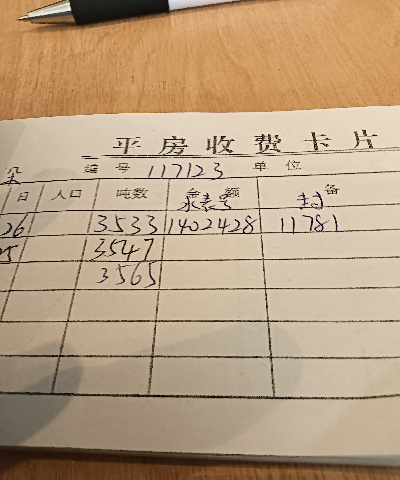 平房收费卡片
编号 117123 单位
日 人口 吨数 金额 备
水表号 封
26 3533 1402428 11781
25 3547
3565